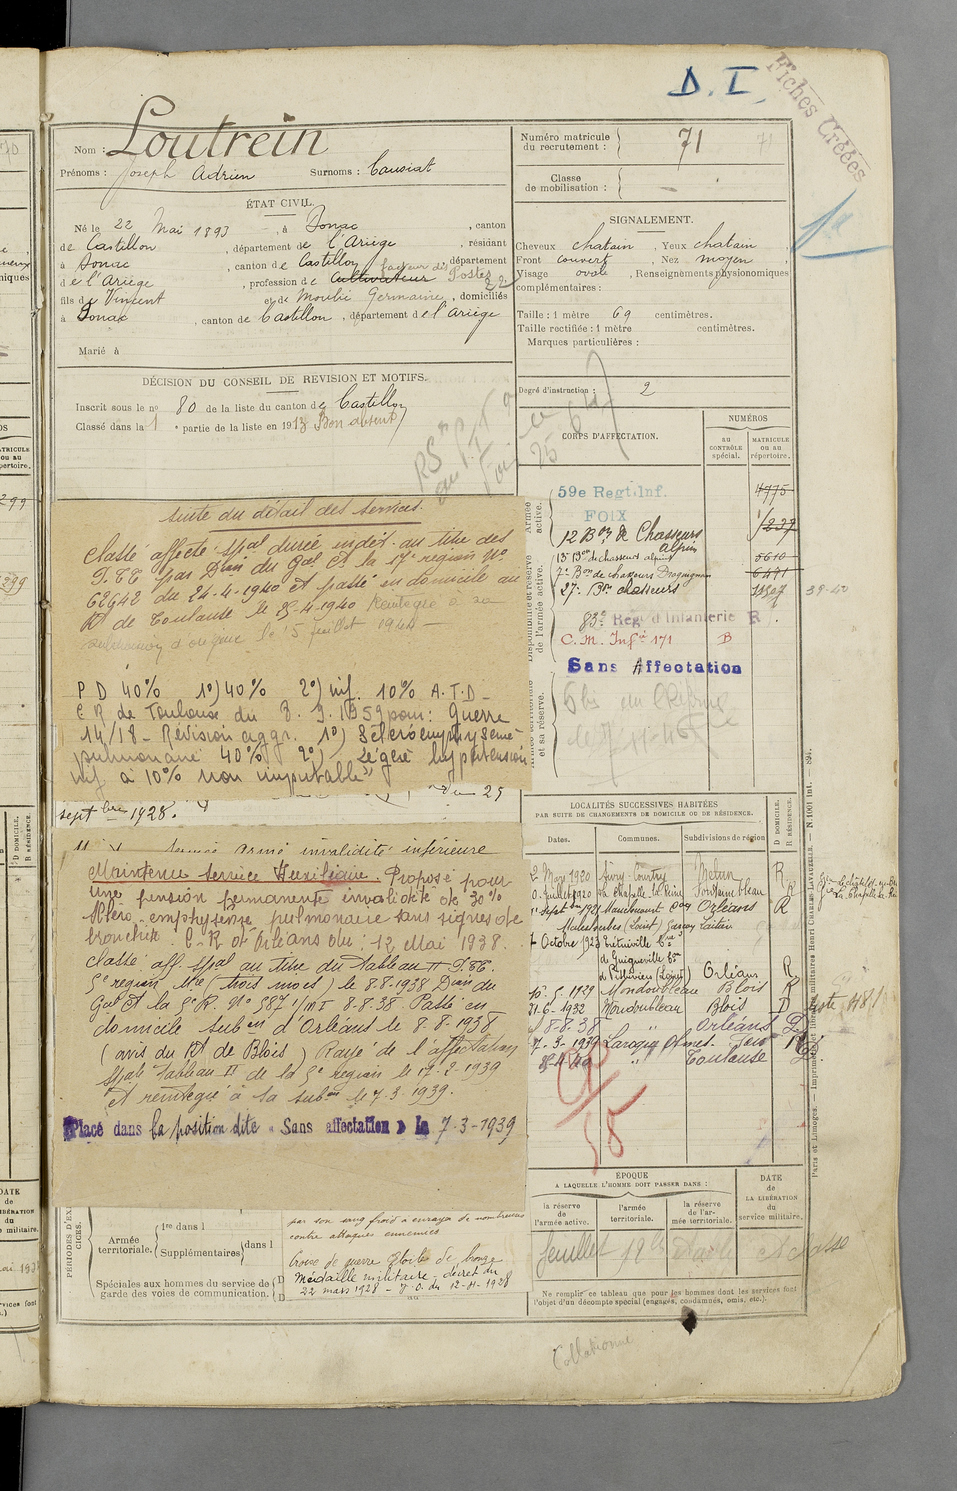 D. I.
Fiches Créées
Nom : Loutrein
Prénoms : Joseph Adrien Surnoms : Causiat
Numéro matricule du recrutement : 71
Classe de mobilisation : —
ÉTAT CIVIL.
Né le 22 Mai 1893, à Sonac, canton
de Castillon, département de l'Ariège, résidant
à Sonac, canton de Castillon, département
de l'Ariège, profession de Cultivateur facteur des Postes
fils de Vincent et de Moulié Germaine, domiciliés
à Sonac, canton de Castillon, département de l'Ariège
Marié à
SIGNALEMENT.
Cheveux chatain, Yeux chatain
Front couvert, Nez moyen,
Visage ovale, Renseignements physionomiques
complémentaires :
Taille : 1 mètre 69 centimètres.
Taille rectifiée : 1 mètre centimètres.
Marques particulières :
Degré d'instruction : 2
DÉCISION DU CONSEIL DE REVISION ET MOTIFS.
Inscrit sous le no 80 de la liste du canton de Castillon
Classé dans la 1e partie de la liste en 1913 Bon absent
CORPS D'AFFECTATION.
NUMÉROS
AU CONTRÔLE spécial.
MATRICULE ou au répertoire.
Armée active.
59e Regt Inf. 4775
FOIX
12 Bon de Chasseurs alpin
13 Bon de chasseurs alpins 5610
7e Bon de chasseurs Draguignan 6471
27e Bon chasseurs
39-40
83e Reg. d'Infanterie R
C. M. Infie 171 B
Sans Affectation
Disponibilité et réserve de l'armée active.
Armée territoriale et sa réserve.
suite du détail des services.
Classé affecté spal durée indét. au titre des
P.T.T. par Don du Gal Ct la 17e région No
62942 du 24-4-1940 et passé en domicile au
Rt de Toulouse le 25-4-1940 Réintégré à sa
subdivision d'origine le 15 juillet 1944 —
P D 40% 1o) 40% 2o) inf. 10% A.T.D —
C R de Toulouse du 8.9.1959 pour : Guerre
14/18 - Révision aggr. 1o) Scléroemphysème
pulmonaire 40% 2o) Légère hypertension
inf à 10% non imputable »
du 25
septbre 1928.
armé invalidité inférieure
Maintenu Service Auxiliaire. Proposé pour
une pension permanente invalidité de 30%
Scléro-emphysème pulmonaire sans signes de
bronchite. C.R. d'Orléans du : 12 Mai 1938.
Classé aff. spal au titre du Tableau II P.T.T.
5e région Mte (trois mois) le 8.8.1938 Don du
Gal Ct la 5e R. No 587 1/M I 8-8-38 Passé en
domicile subon d'Orléans le 8-8-1938
(avis du Rt de Blois) Rayé de l'affectation
spale Tableau II de la 5e région le 17-2-1939
et réintégré à la subon le 7.3.1939.
Placé dans la position dite « Sans affectation » le 7-3-1939
LOCALITÉS SUCCESSIVES HABITÉES
PAR SUITE DE CHANGEMENTS DE DOMICILE OU DE RÉSIDENCE.
Dates. Communes. Subdivisions de région D DOMICILE. R RÉSIDENCE.
2 May 1920 Melun R
Juillet 1920 La Chapelle la Reine Fontainebleau R
1er Septbre 1921 Orléans R
Malesherbes (Loiret)
Octobre 1923
de Pithiviers (Loiret) Orléans R
10.5.1929 Mondoubleau Blois R
21-6-1932 Mondoubleau Blois D
8-8-38 " Orléans D
7-3-1939 Laroque Olmes Foix R
25-4-40 " Toulouse D
ÉPOQUE
A LAQUELLE L'HOMME DOIT PASSER DANS :
la réserve de l'armée active.
l'armée territoriale.
la réserve de l'armée territoriale.
DATE de LA LIBÉRATION du service militaire.
feuillet
Ne remplir ce tableau que pour les hommes dont les services font
l'objet d'un décompte spécial (engagés, condamnés, omis, etc.).
Armée territoriale.
1re dans l
Supplémentaires dans l
Spéciales aux hommes du service de
garde des voies de communication.
par son sang froid a enrayé de nombreuses
contre attaques ennemies
Croix de guerre Etoile de bronze
Médaille militaire - décret du
22 mars 1928 - J.O. du 12-4-1928
Collationné
Paris et Limoges. — Imprimerie et librairie militaires Henri CHARLES-LAVAUZELLE. — N. 1001 Int.